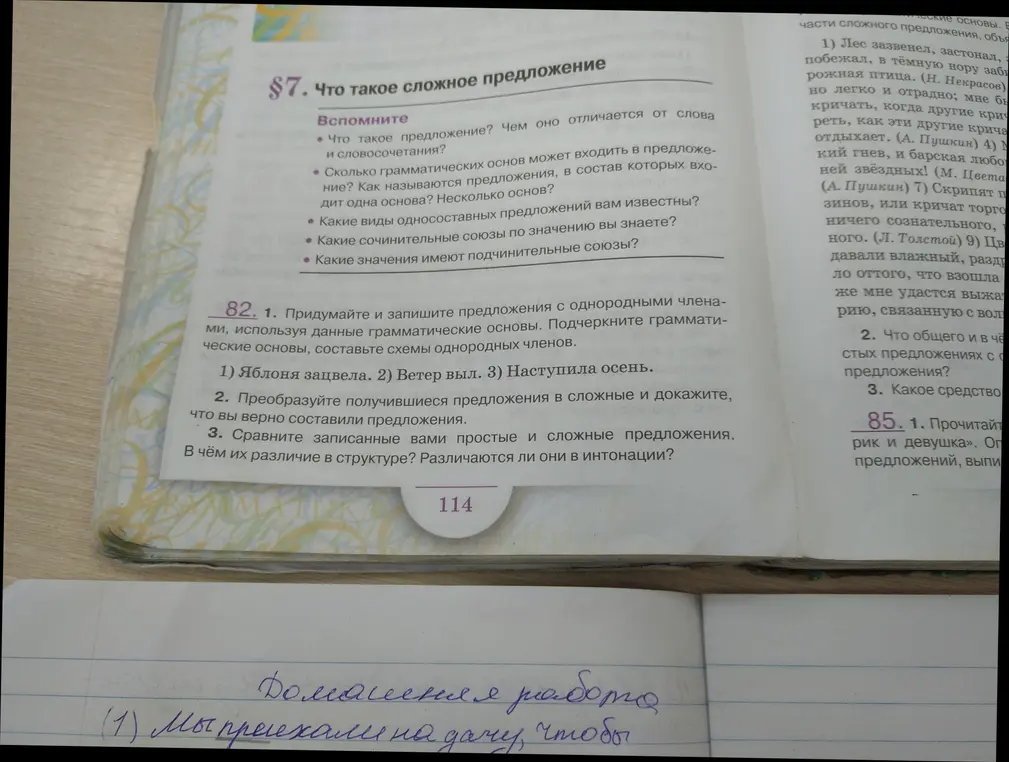 §7. Что такое сложное предложение
Вспомните
• Что такое предложение? Чем оно отличается от слова
и словосочетания?
• Сколько грамматических основ может входить в предложе-
ние? Как называются предложения, в состав которых вхо-
дит одна основа? Несколько основ?
• Какие виды односоставных предложений вам известны?
• Какие сочинительные союзы по значению вы знаете?
• Какие значения имеют подчинительные союзы?
82. 1. Придумайте и запишите предложения с однородными члена-
ми, используя данные грамматические основы. Подчеркните граммати-
ческие основы, составьте схемы однородных членов.
1) Яблоня зацвела. 2) Ветер выл. 3) Наступила осень.
2. Преобразуйте получившиеся предложения в сложные и докажите,
что вы верно составили предложения.
3. Сравните записанные вами простые и сложные предложения.
В чём их различие в структуре? Различаются ли они в интонации?
114
основы.
части сложного предложения,
1) Лес зазвенел, застонал,
побежал, в тёмную нору
рожная птица. (Н. Некрасов)
но легко и отрадно; мне
кричать, когда другие
реть, как эти другие
отдыхает. (А. Пушкин) 4)
кий гнев, и барская
ней звёздных! (М.
(А. Пушкин) 7) Скрипят
зинов, или кричат
ничего сознательного,
ного. (Л. Толстой) 9)
давали влажный,
ло оттого, что взошла
же мне удастся
рию, связанную с
2. Что общего и в
стых предложениях с
предложения?
3. Какое средство
85. 1.
рик и девушка».
предложений,
Домашняя работа
(1) Мы приехали на дачу, чтобы